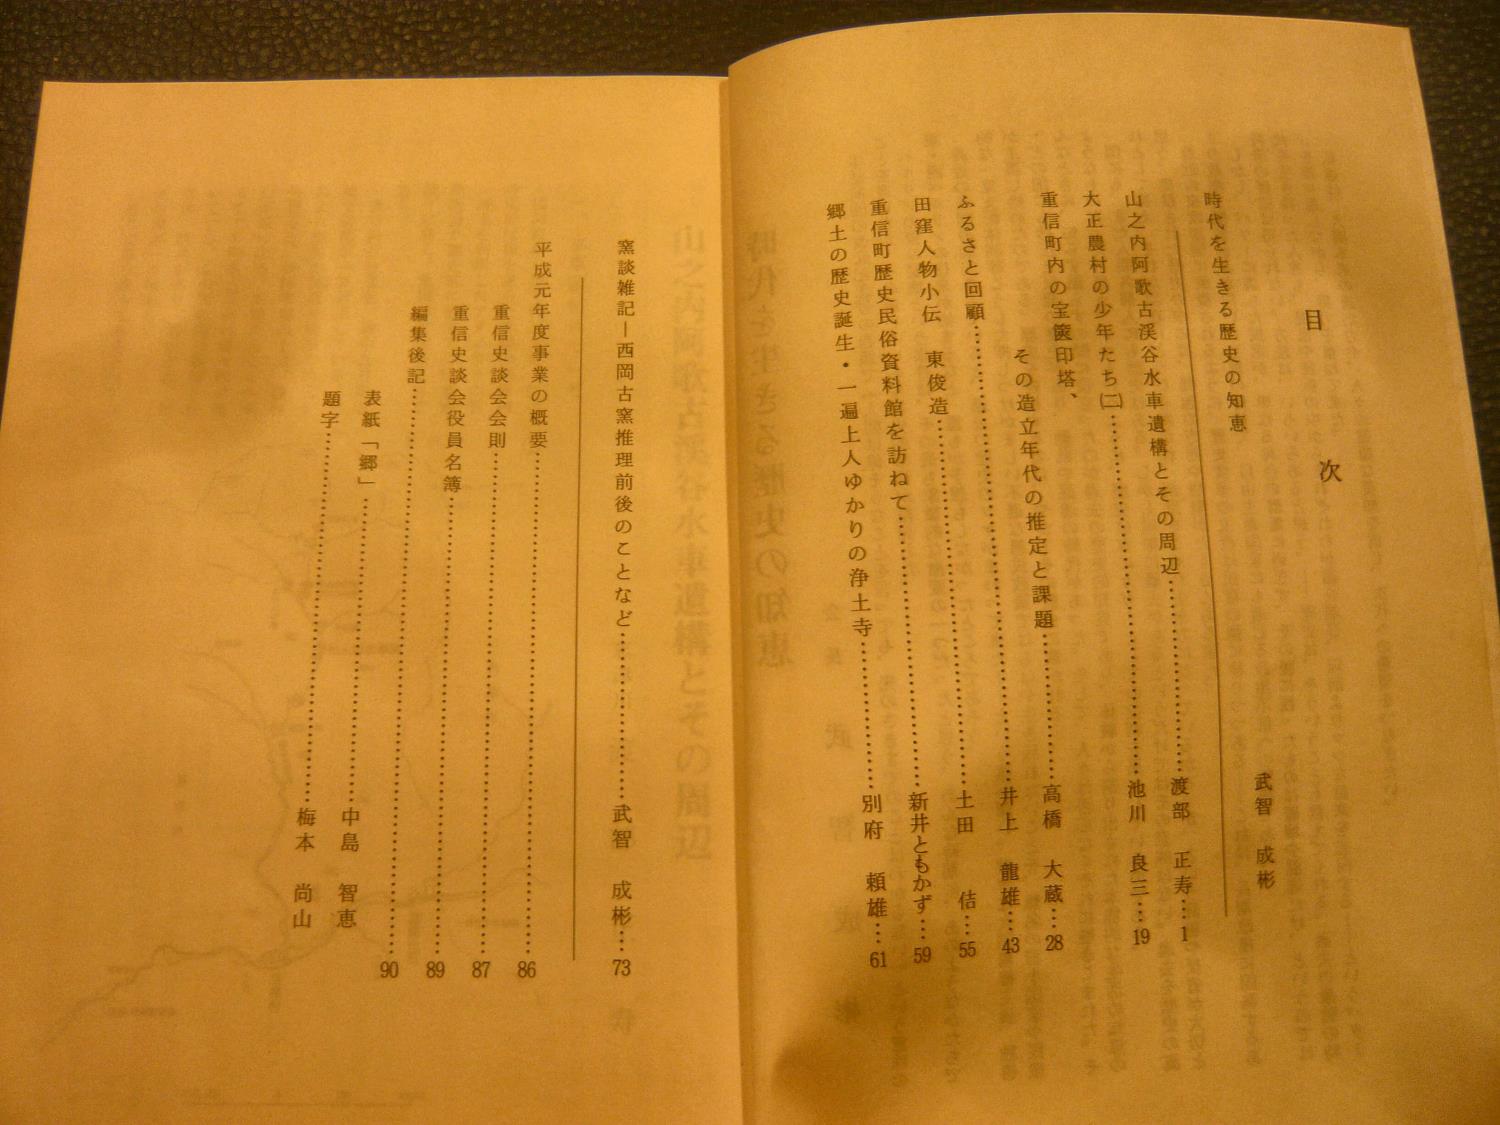 目次
時代を生きる歴史の知恵 武智 成彬
山之内阿歌古渓谷水車遺構とその周辺……………渡部 正寿…1
大正農村の少年たち㈡……………池川 良三…19
重信町内の宝篋印塔、
その造立年代の推定と課題……………高橋 大蔵…28
ふるさと回顧……………井上 龍雄…43
田窪人物小伝 東俊造……………土田 佶…55
重信町歴史民俗資料館を訪ねて……………新井ともかず…59
郷土の歴史誕生・一遍上人ゆかりの浄土寺……………別府 頼雄…61
窯談雑記―西岡古窯推理前後のことなど……………武智 成彬…73
平成元年度事業の概要……………86
重信史談会会則……………87
重信史談会役員名簿……………89
編集後記……………90
表紙「郷」……………中島 智恵
題字……………梅本 尚山